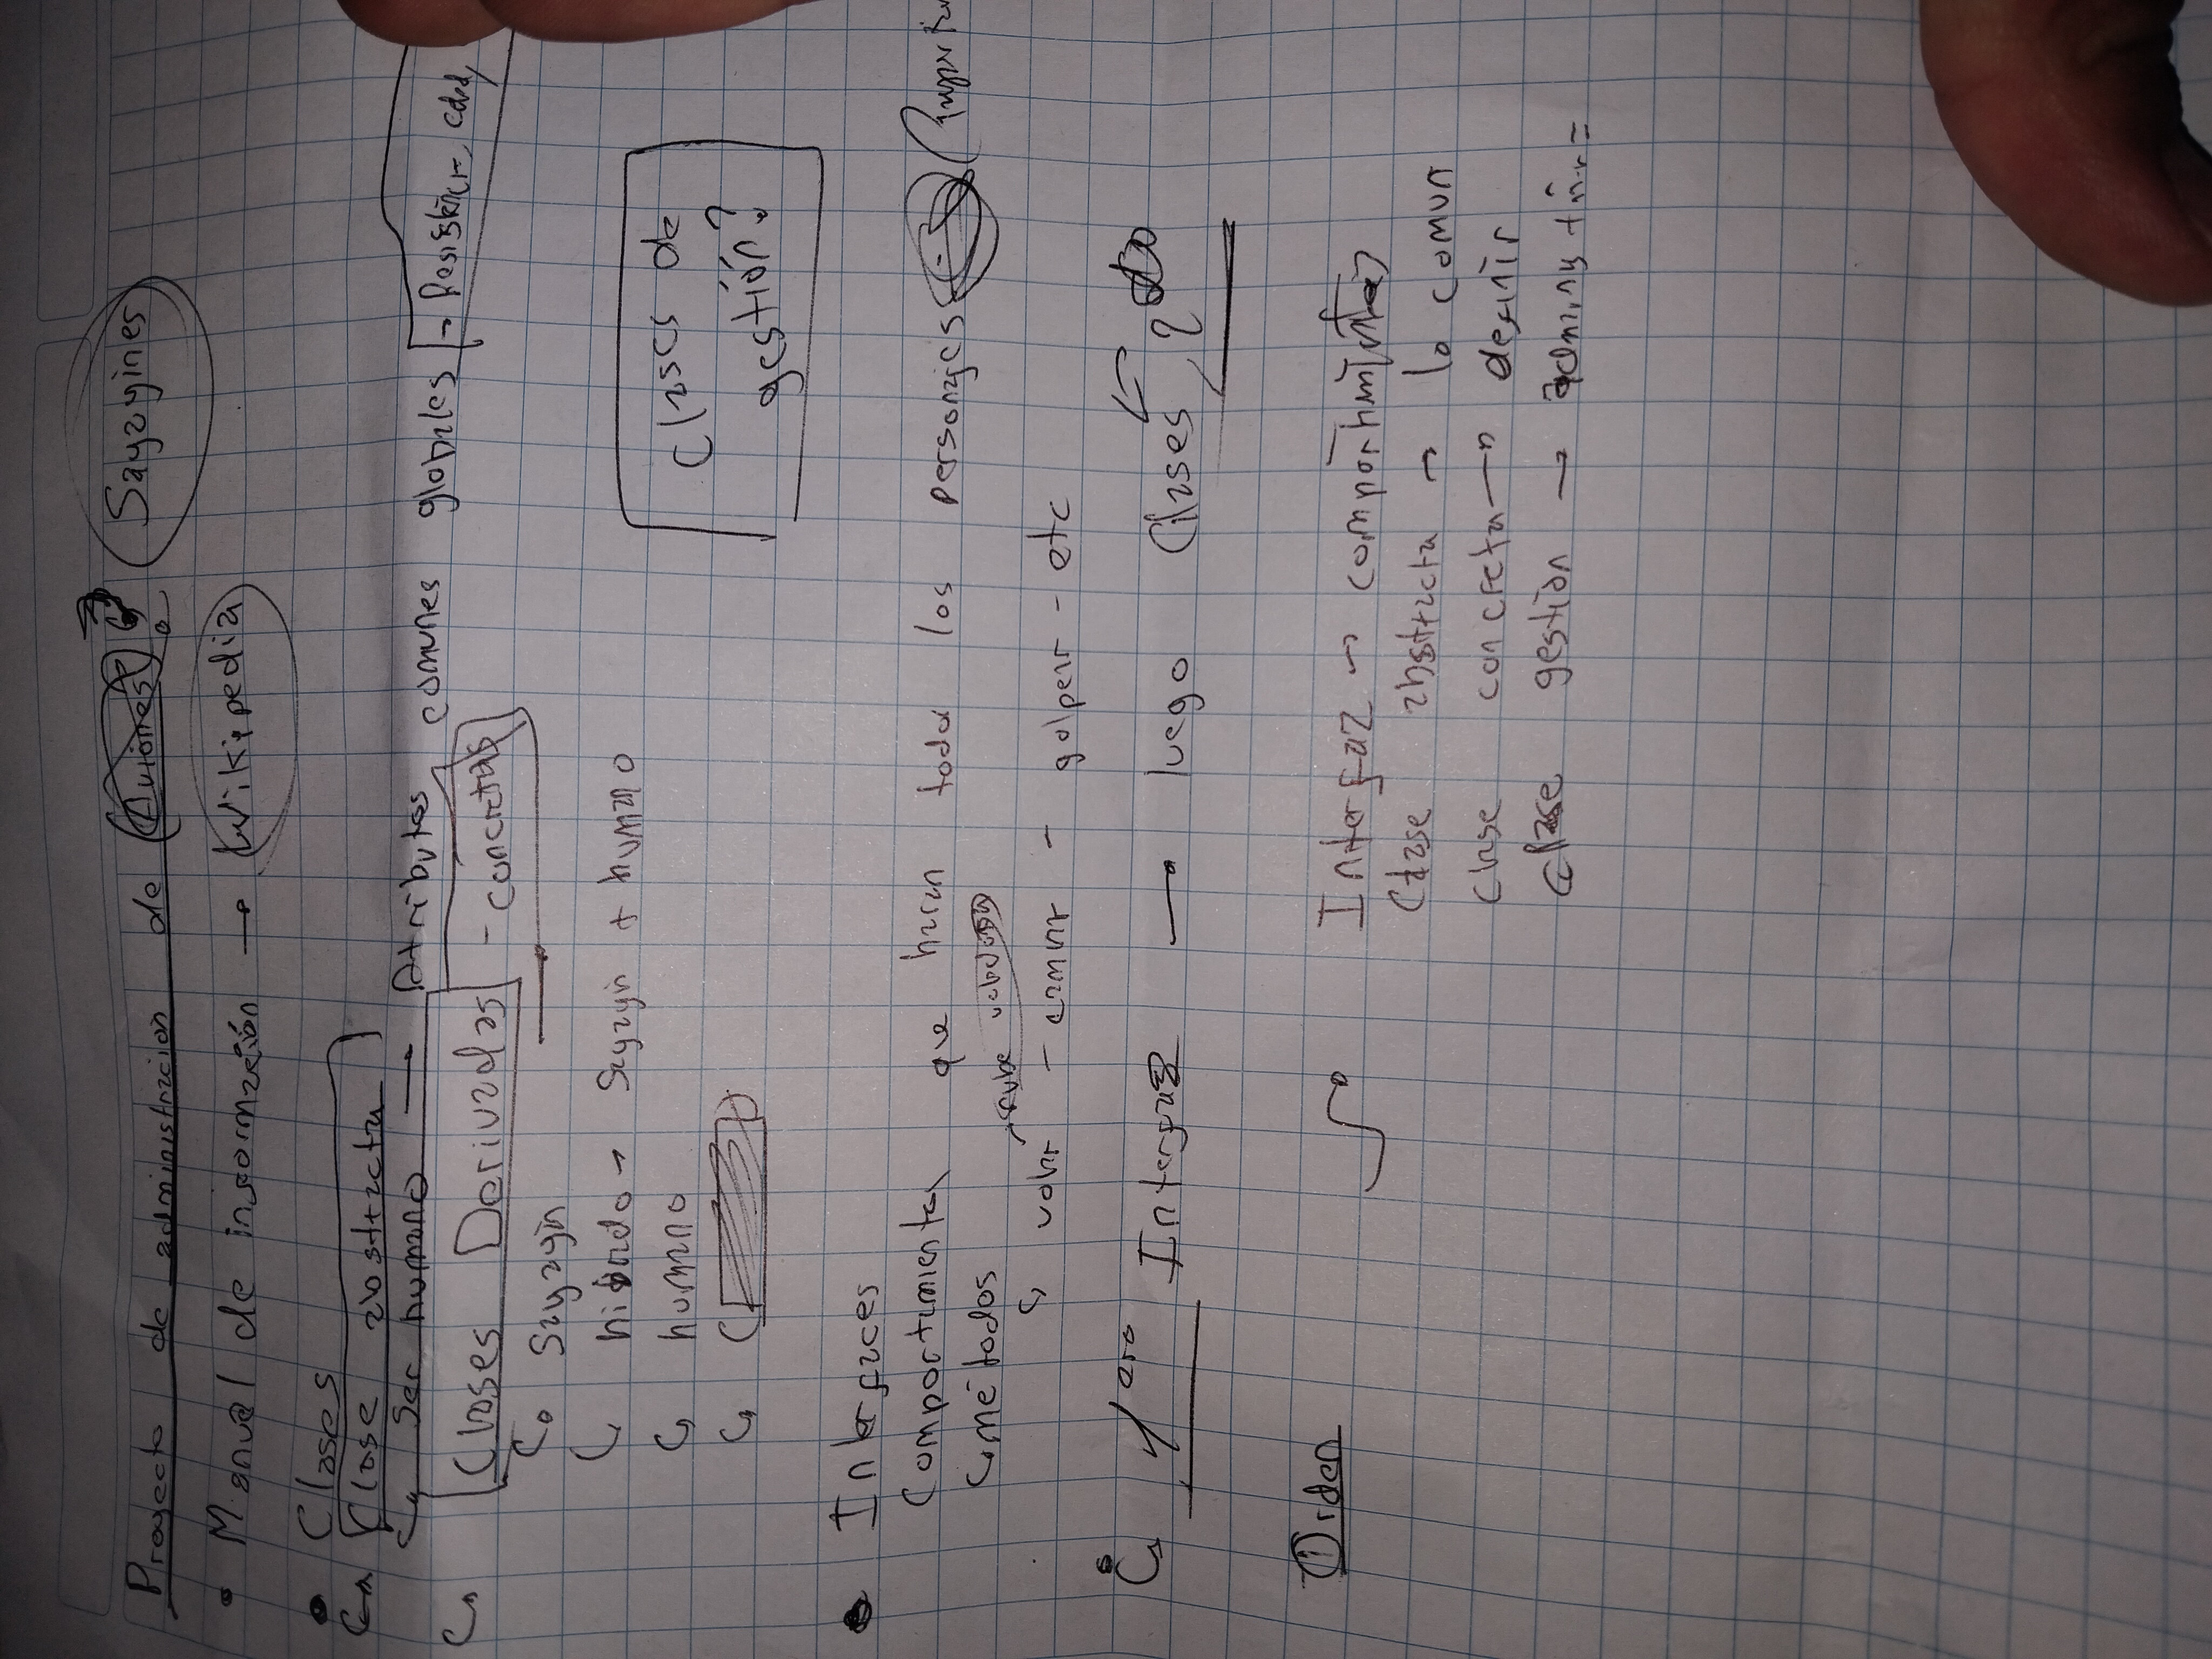 Proyecto de administracion de Saiyayines
• Manual de informacion → Wikipedia
• Clases
Clase abstracta
Ser humano → Atributos comunes globales → Resistencia, edad,
Clases Derivadas - concretas
Saiyayin
hibrido → Saiyayin + humano
humano
Clases de
gestión?
• Interfaces
Comportamientos que haran todos los personajes
métodos
nube voladora
volar - caminar - golpear - etc
Yaro Interfaz → luego Clases
Orden
Interfaz → comportamientos
Clase abstracta → lo comun
clase concreta → definir
clase gestión →